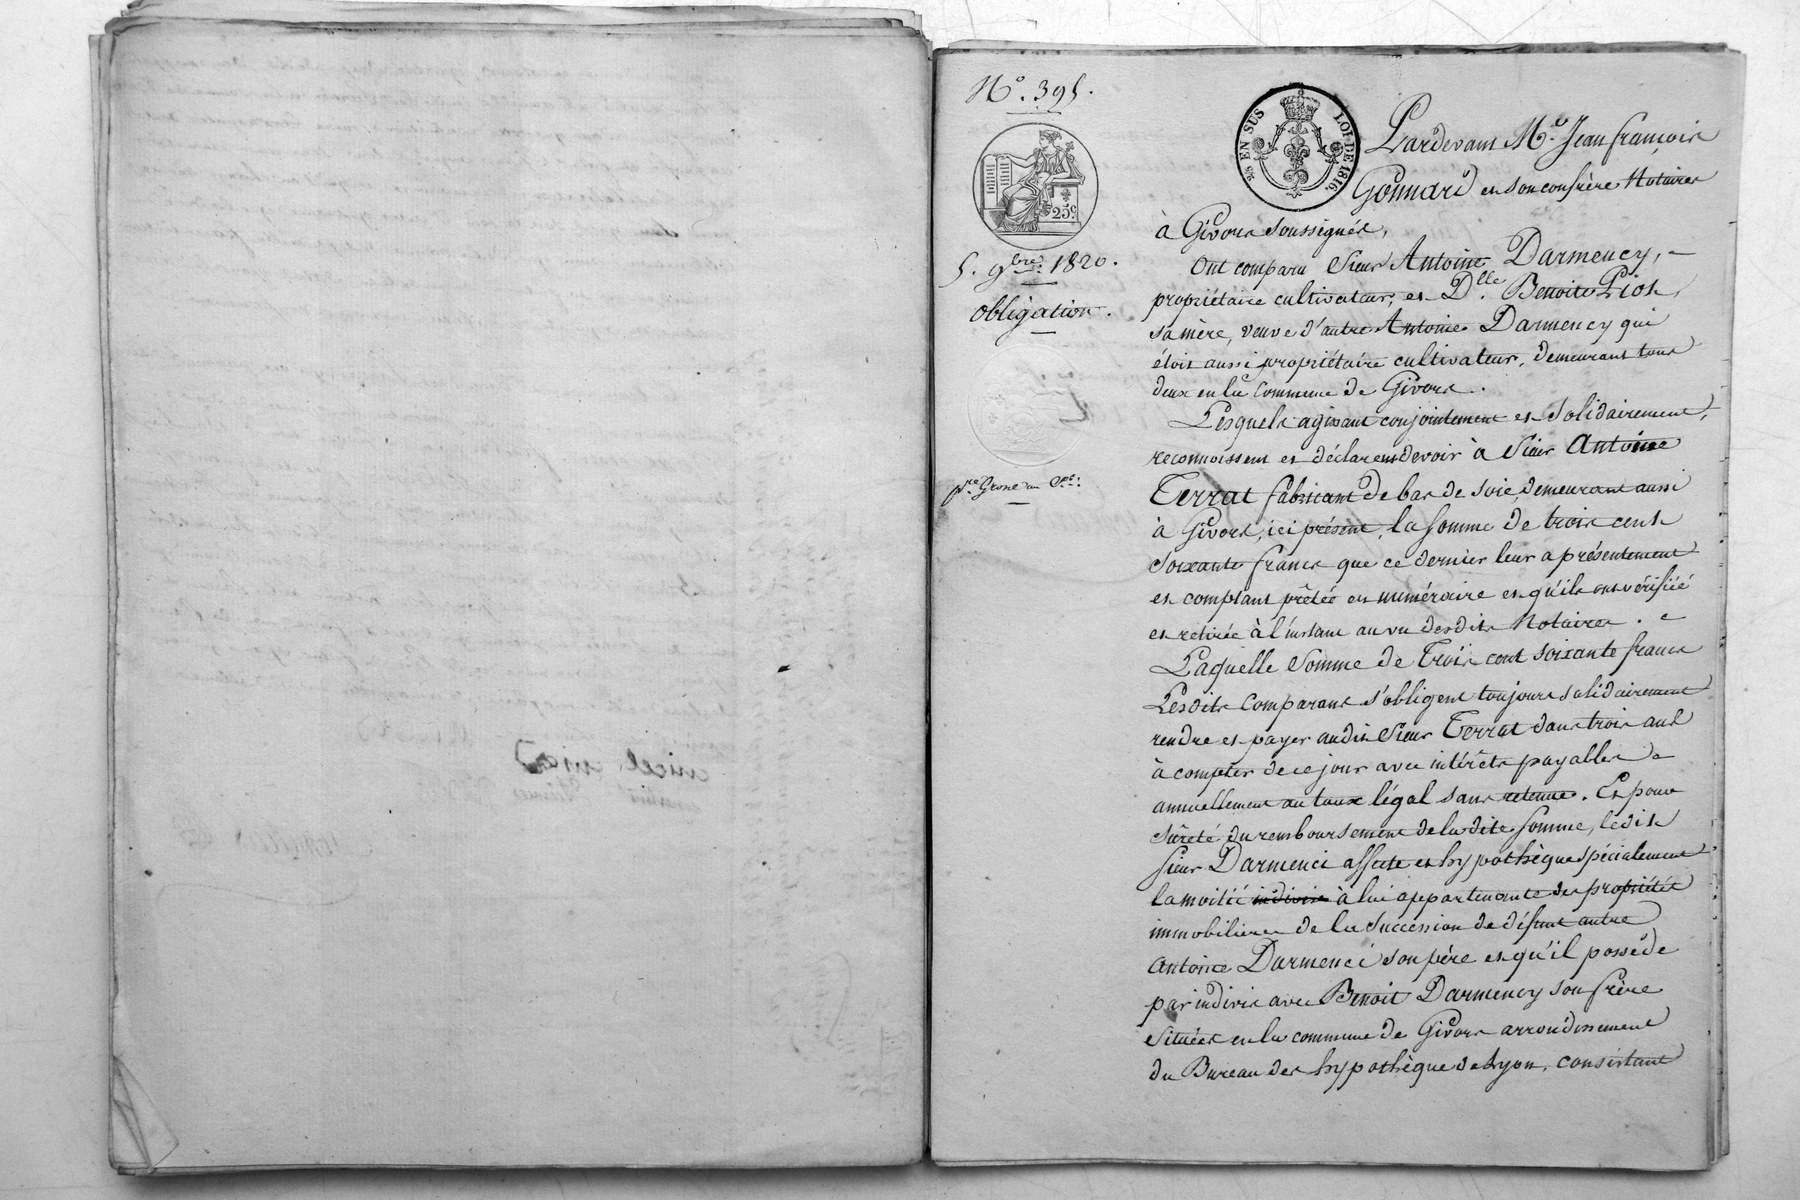 N.° 395.
25c
5. 9bre 1820.
obligation.
pre Grosse au Sr.
EN SUS LOI DE 1816.
Pardevant Me. Jean françois
Gonnard et son confrère Notaires
à Givors soussignés,
Ont comparu Sieur Antoine Darmency,
propriétaire cultivateur, et Dlle. Benoite Piot
sa mère, veuve d'autre Antoine Darmency qui
étoit aussi propriétaire cultivateur, demeurant tous
deux en la commune de Givors.
Lesquels agissant conjointement et solidairement,
reconnoissent et déclarent devoir à Sieur Antoine
Terrat fabricant de bas de soie, demeurant aussi
à Givors, ici présent, la somme de trois cent
soixante francs que ce dernier leur a présentement
et comptant prêtée en numéraire et qu'ils ont vérifiée
et retirée à l'instant au vu desdits Notaires.
Laquelle somme de Trois cent soixante francs
Lesdits comparans s'obligent toujours solidairement
rendre et payer audit Sieur Terrat dans trois ans
à compter de ce jour avec intérêts payables
annuellement au taux légal sans retenue. Et pour
sûreté du remboursement de la dite somme, ledit
sieur Darmenci affecte et hypothèque spécialement
la moitié indivise à lui appartenante des propriétés
immobilières de la succession de défunt autre
Antoine Darmenci son père et qu'il possède
par indivis avec Benoit Darmency son frère
situées en la commune de Givors arrondissement
du Bureau des hypothèque de Lyon, consistant